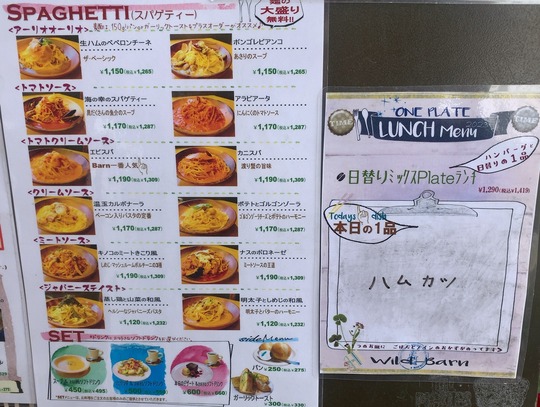 SPAGHETTI(スパゲティー)
麺の
大盛り
無料!!
<アーリオオーリオ>
生ハムのペペロンチーネ
ザ・ベーシック
¥1,150(税込¥1,265)
ボンゴレビアンコ
あさりのスープ
¥1,150(税込¥1,265)
<トマトソース>
海の幸のスパゲティー
具だくさんの魚介のスープ
¥1,170(税込¥1,287)
アラビアータ
にんにくのトマトソース
¥1,170(税込¥1,287)
<トマトクリームソース>
エビスパ
Barn一番人気
¥1,190(税込¥1,309)
カニスパ
渡り蟹の旨味
¥1,190(税込¥1,309)
<クリームソース>
温玉カルボナーラ
ベーコン入りパスタの定番
¥1,190(税込¥1,309)
ポテトとゴルゴンゾーラ
ゴルゴンゾーラチーズとポテトのハーモニー
¥1,190(税込¥1,309)
<ミートソース>
キノコのミートきこり風
¥1,190(税込¥1,309)
ナスのボロネーゼ
ミートソースの王道
¥1,190(税込¥1,309)
<ジャパニーズテイスト>
蒸し鶏と山菜の和風
ヘルシーなジャパニーズパスタ
¥1,120(税込¥1,232)
明太子としめじの和風
明太子とバターのハーモニー
¥1,120(税込¥1,232)
SET
¥450(税込¥495)
¥600(税込¥660)
Side Menu
パン ¥250(税込¥275)
ガーリックトースト
¥300(税込¥330)
TIME
"ONE PLATE
LUNCH Menu
TIME
ハンバーグと
日替りの1品
日替りミックスPlateランチ
¥1,290(税込¥1,419)
Today's dish
本日の1品
ハムカツ
Wild Barn